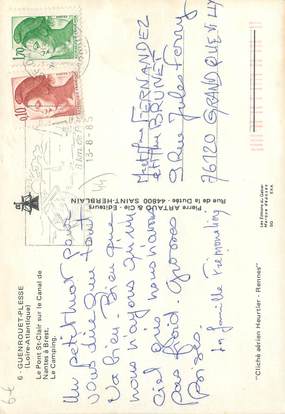 6 - GUENROUET-PLESSE
(Loire-Atlantique)
Le Pont St-Clair sur le Canal de
Nantes à Brest.
Le Camping.
Un petit mot pour
vous dire que tout
va bien. Bien que
nous n'ayons qu'un
ciel gris nous n'avons
pas froid. Grosses
Bises.
la famille
Pierre ARTAUD & Cie - Editeurs
Rue de la Durée - 44800 SAINT-HERBLAIN
"Cliché aérien Heurtier - Rennes"
1,70
0,10
13-8-85
FERNANDEZ
et Mme BRUNET
9 Rue Jules Ferry
76120 GRAND QUEVILLY
6€